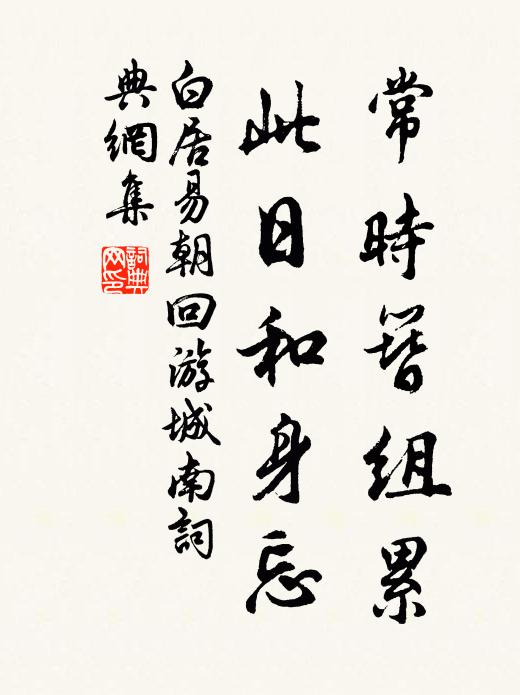 常時簪組累
此日和身忘
白居易朝回游城南詞
典網集
詞典
网印